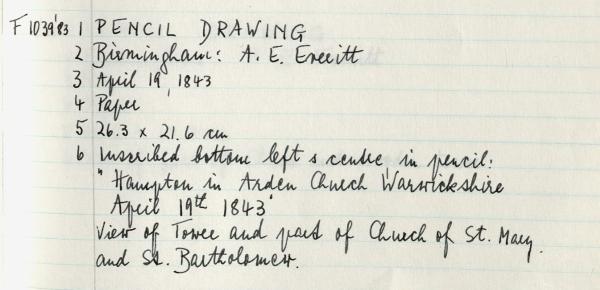 F1039'83 1 PENCIL DRAWING
2 Birmingham: A. E. Everitt
3 April 19, 1843
4 Paper
5 26.3 x 21.6 cm
6 Inscribed bottom left & centre in pencil:
"Hampton in Arden Church Warwickshire
April 19th 1843"
View of Tower and part of Church of St. Mary
and St. Bartholomew.